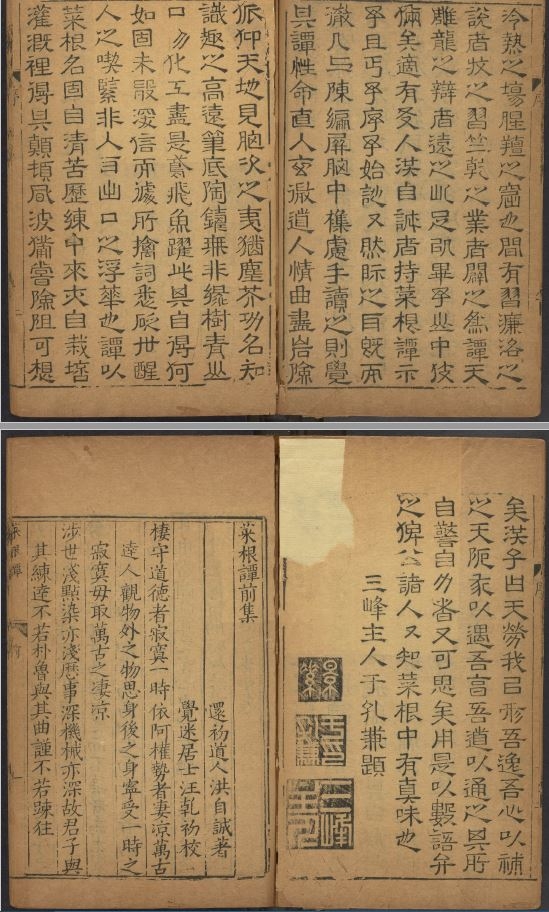 冷熱之場腥羶之窟也間有習濂洛之
說者牧之習竺乾之業者闢之為譚天
雕龍之辯者遠之此足以畢予山中伎
倆矣適有友人洪自誠者持菜根譚示
予且丐予序予始訑又然眎之耳既而
徹几上陳編屏胸中襍慮手讀之則覺
其譚性命直入玄微道人情曲盡岩險
俯仰天地見胸次之夷猶塵芥功名知
識趣之高遠筆底陶鑄無非綠樹青山
口吻化工盡是鳶飛魚躍此其自得何
如固未能深信而據所擒詞悉砭世醒
人之喫緊非入耳出口之浮華也譚以
菜根名固自清苦歷練中來亦自栽培
灌溉裡得其顛頓風波備嘗險阻可想
矣洪子曰天勞我以形吾逸吾心以補
之天阨我以遇吾高吾道以通之其所
自警自力者又可思矣用是以數語弁
之俾公諸人又知菜根中有真味也
三峰主人于孔兼題
景素
菜根譚前集
還初道人洪自誠著
覺迷居士汪乾初校
棲守道德者寂寞一時依阿權勢者凄凉萬古
達人觀物外之物思身後之身寧受一時之
寂寞毋取萬古之凄凉
涉世淺點染亦淺歷事深機械亦深故君子與
其練達不若朴魯與其曲謹不若踈狂